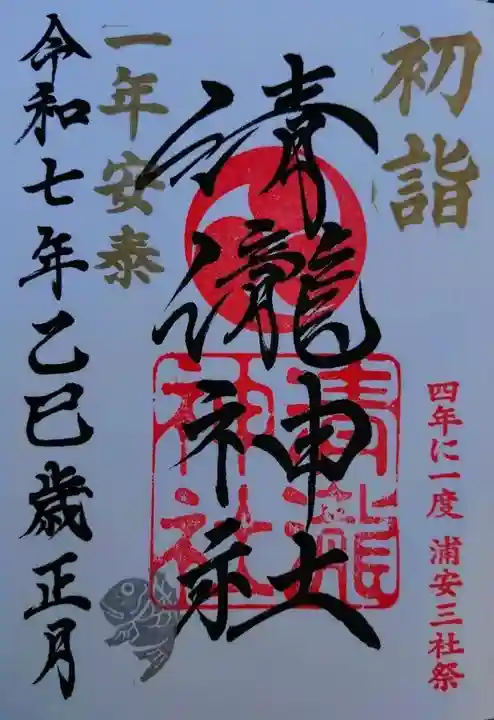 初詣
四年に一度 浦安三社祭
清瀧神社
清瀧
神社
一年安泰
令和七年乙巳歳正月